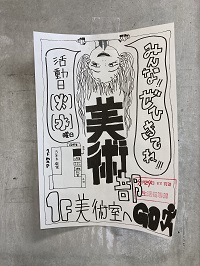 みんな!!ぜひきてね!!!
活動日
火水
曜日
美術
部
1F美術室へGO